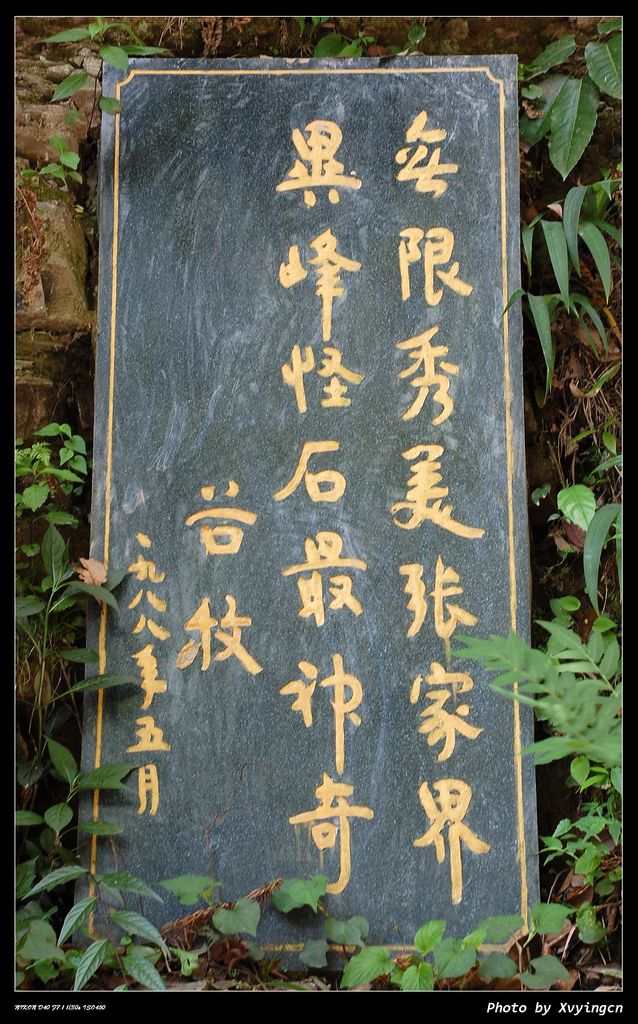 無限秀美张家界
異峰怪石最神奇
谷牧
一九八八年五月
NIKON D40 F7.1 1/50s ISO450
Photo by Xvyingcn